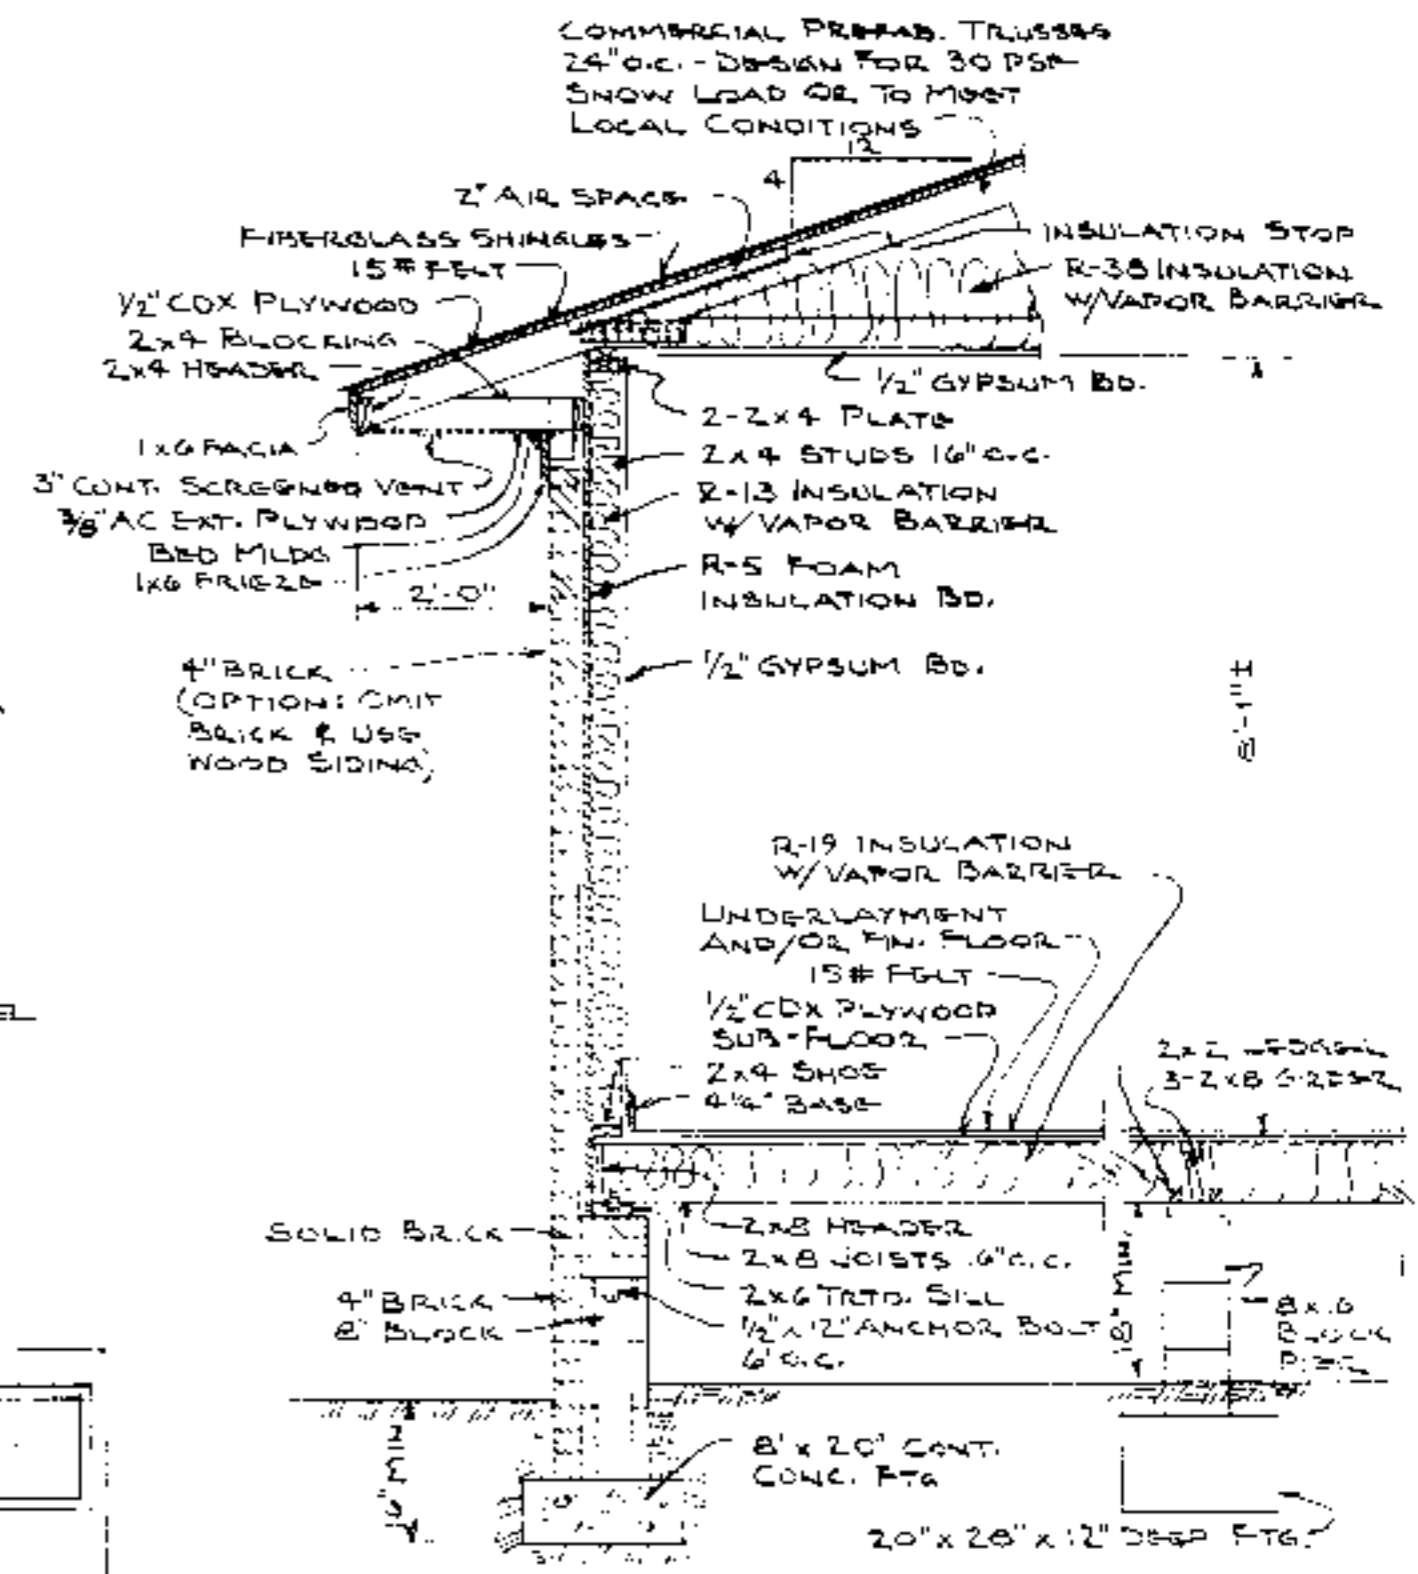 COMMERCIAL PREFAB. TRUSSES
24" O.C. - DESIGN FOR 30 PSF
SNOW LOAD OR TO MEET
LOCAL CONDITIONS
12
4
2" AIR SPACE
FIBERGLASS SHINGLES
15# FELT
1/2" CDX PLYWOOD
2x4 BLOCKING
2x4 HEADER
1x6 FACIA
3" CONT. SCREENED VENT
3/8" AC EXT. PLYWOOD
BED MLDG
1x6 FRIEZE
2'-0"
4" BRICK
(OPTION: OMIT
BRICK & USE
WOOD SIDING)
INSULATION STOP
R-38 INSULATION
W/VAPOR BARRIER
1/2" GYPSUM BD.
2-2x4 PLATE
2x4 STUDS 16" O.C.
R-13 INSULATION
W/VAPOR BARRIER
R-5 FOAM
INSULATION BD.
1/2" GYPSUM BD.
R-19 INSULATION
W/VAPOR BARRIER
UNDERLAYMENT
AND/OR FIN. FLOOR
15# FELT
1/2" CDX PLYWOOD
SUB-FLOOR
2x4 SHOE
4 1/4" BASE
2x2
3-2x8 GIRDER
SOLID BRICK
4" BRICK
8" BLOCK
2x8 HEADER
2x8 JOISTS 16" O.C.
2x6 TRTD. SILL
1/2" x 12" ANCHOR BOLT
6' O.C.
18" MIN.
BLOCK
8" x 20" CONT.
CONC. FTG
20" x 28" x 12" DEEP FTG.